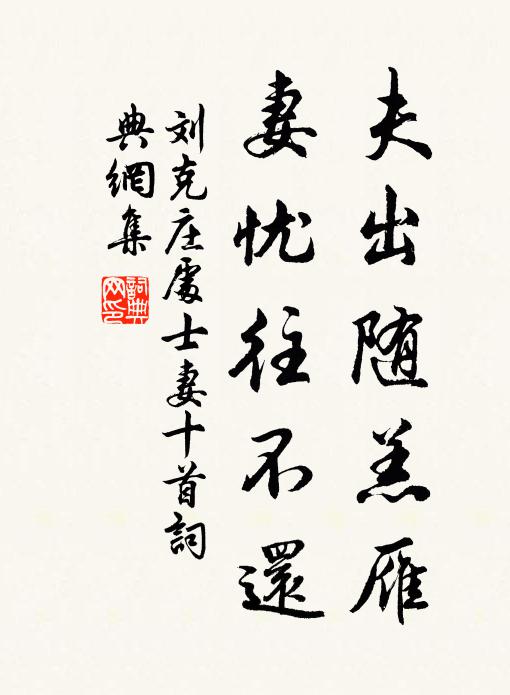 夫出随羔雁
妻忧往不還
刘克庄處士妻十首詞
典網集
詞典
网印